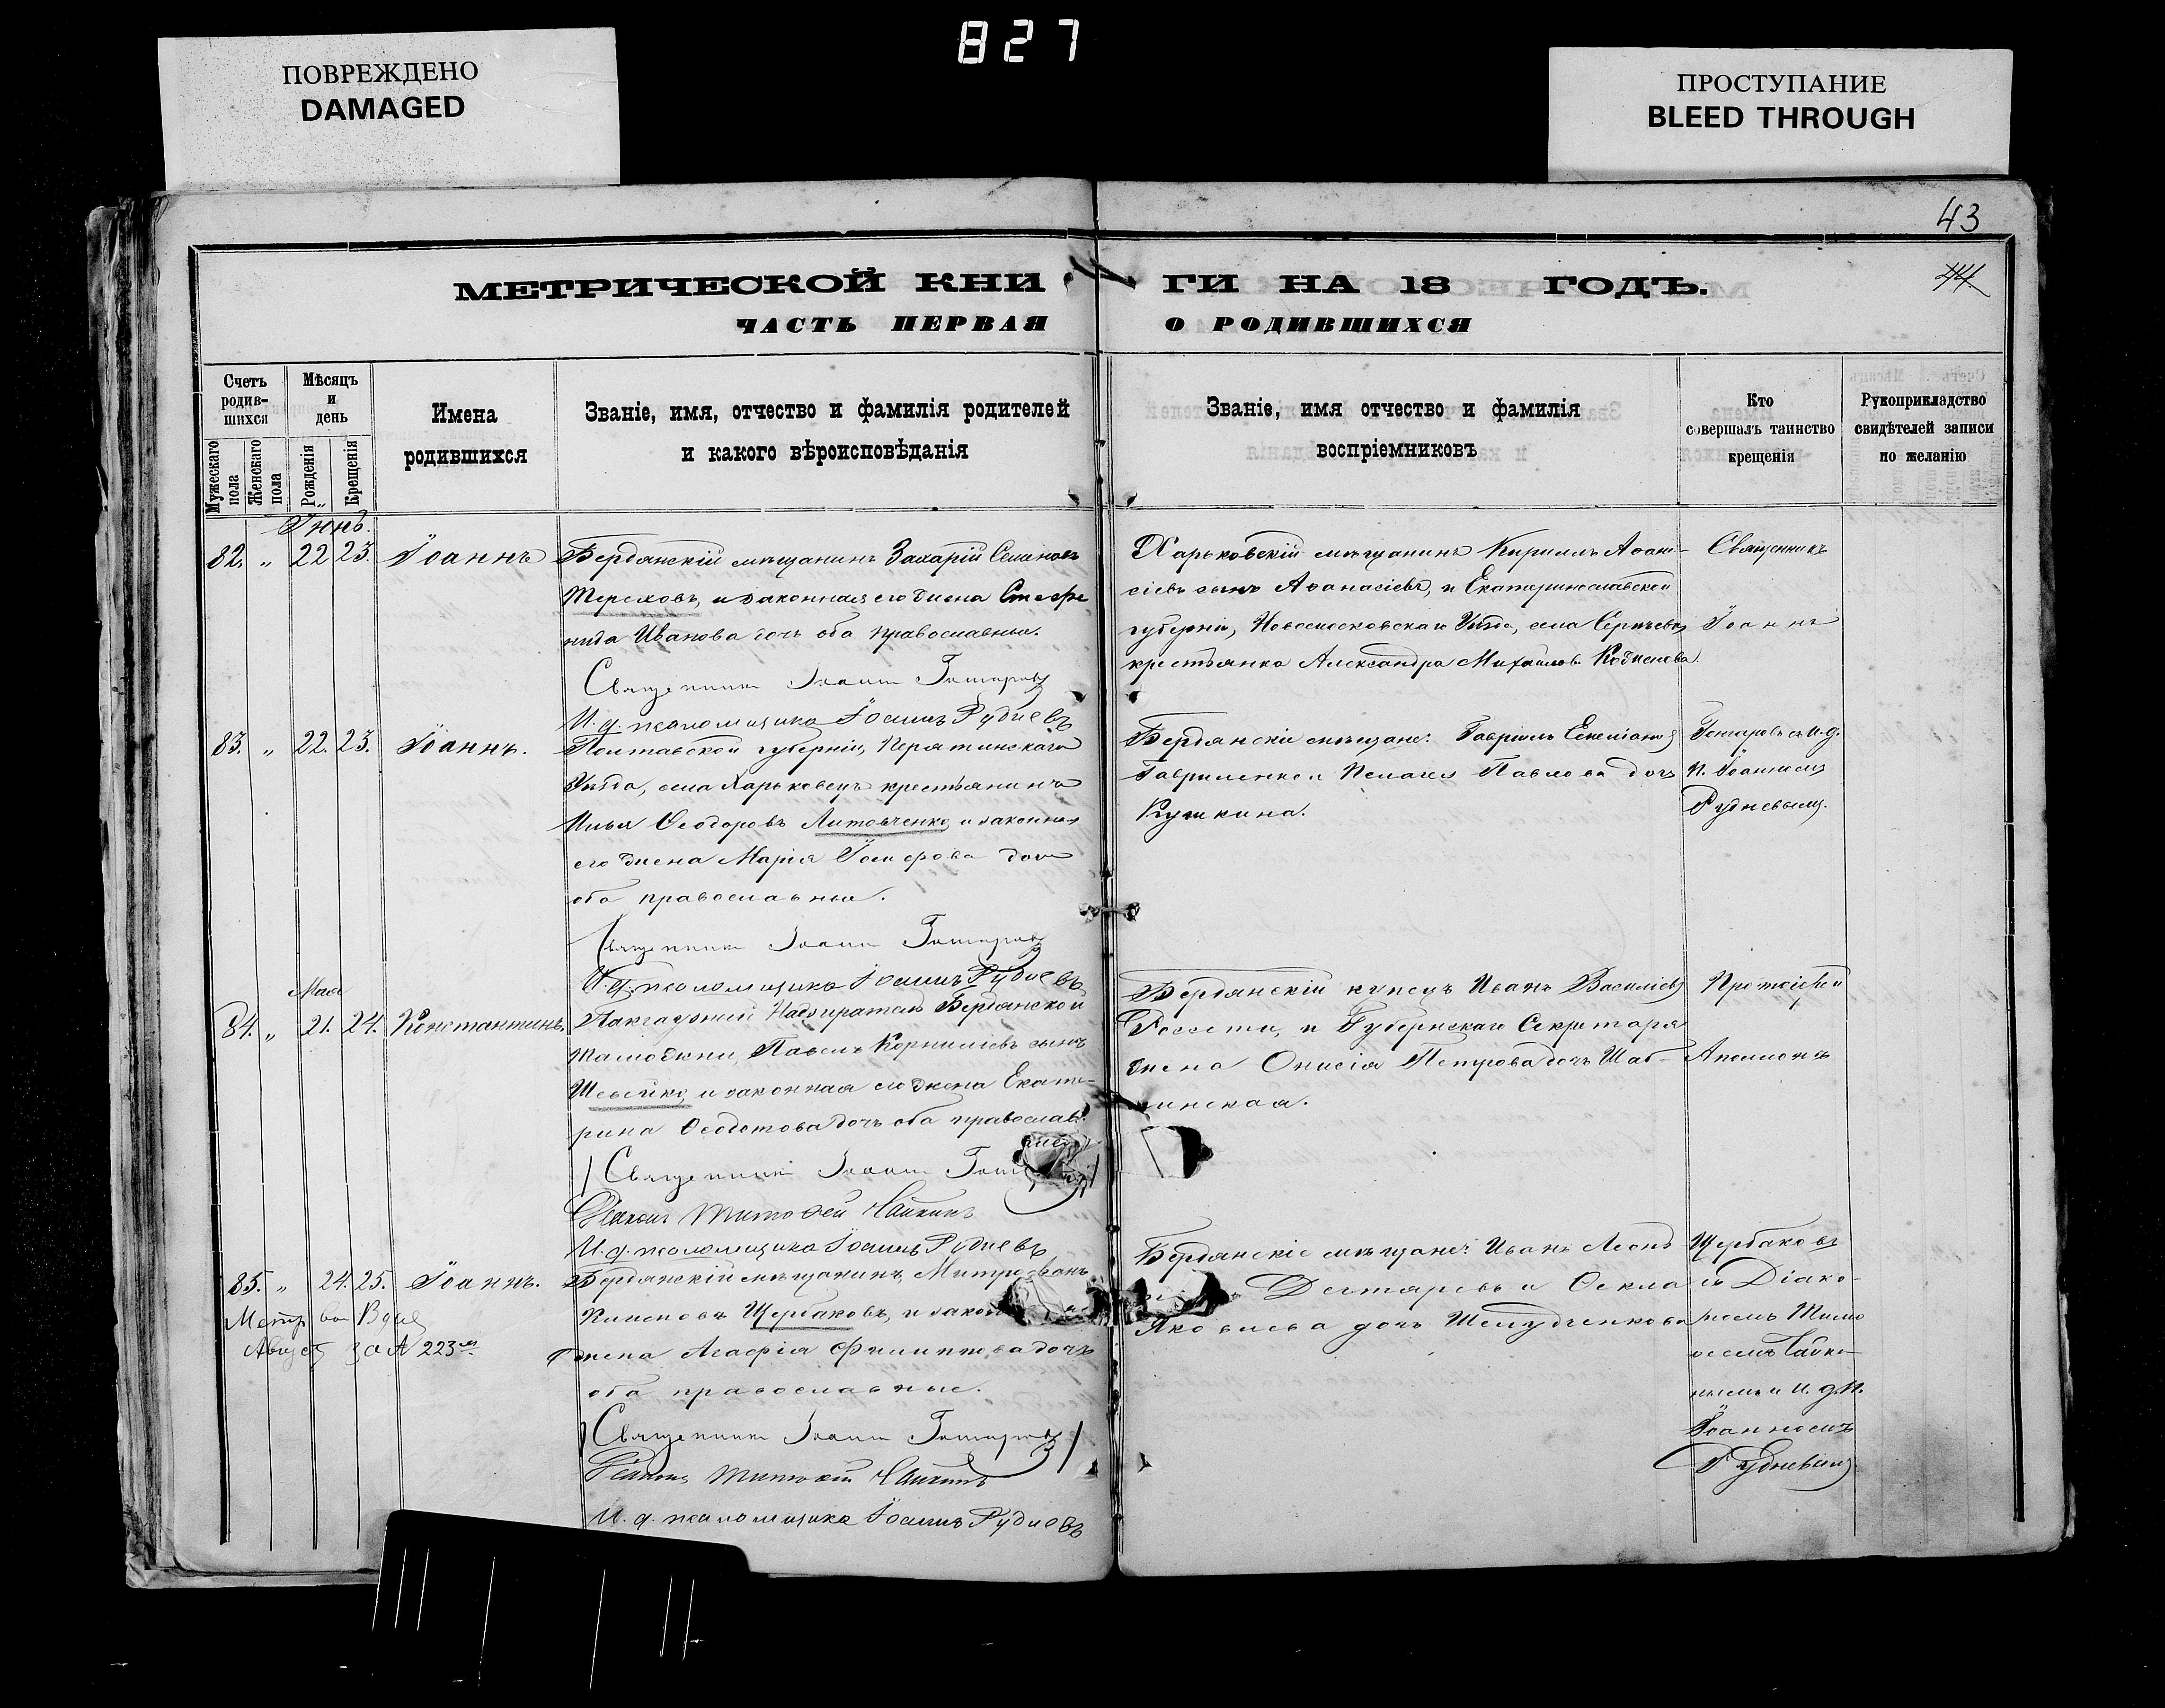 827
ПОВРЕЖДЕНО
DAMAGED
ПРОСТУПАНИЕ
BLEED THROUGH
43
44
МЕТРИЧЕСКОЙ КНИ ГИ НА 18 ГОДЪ.
ЧАСТЬ ПЕРВАЯ О РОДИВШИХСЯ
Счетъ родив-шихся
Мужескаго пола
Женскаго пола
Мѣсяцъ и день
Рожденія
Крещенія
Имена родившихся
Званіе, имя, отчество и фамилія родителей
и какого вѣроисповѣданія
Званіе, имя отчество и фамилія
воспріемниковъ
Кто
совершалъ таинство
крещенія
Рукоприкладство
свидѣтелей записи
по желанію
Іюнь.
82. " 22 23. Іоаннъ
Бердянскій мѣщанинъ Захарій
Тереховъ, и законная его жена Стефа
нида Иванова дочь оба православные.
Священникъ Іоаннъ
И. д. псаломщика Іоаннъ Рудневъ
Харьковскій мѣщанинъ Кириллъ Аѳана-
сіевъ сынъ Аѳанасіевъ, и Екатеринославской
губерніи, Новомосковскаго Уѣзда, села
крестьянка Александра Михайлова
Священникъ
Іоаннъ
83. " 22. 23. Іоаннъ.
Полтавской губерніи, Пирятинскаго
Уѣзда, села Харьковецъ крестьянинъ
Илья Ѳеодоровъ Литовченко, и законная
его жена Марія Іосифова дочь
оба православные.
Священникъ Іоаннъ
И. д. псаломщика Іоаннъ Рудневъ
Бердянскіе мѣщане: Гавріилъ
Гавриленко и Пелагея Павлова дочь
Кушкина.
съ и. д.
п. Іоанномъ
Рудневымъ.
Мая
84. " 21. 24. Константинъ.
Пакгаузный Надзиратель Бердянской
Таможни, Павелъ Корниліевъ сынъ
и законная его жена Екате-
рина Ѳеодотова дочь оба православ-
ные
Священникъ Іоаннъ
Діаконъ Тимоѳей Чайкинъ
И. д. псаломщика Іоаннъ Рудневъ
Бердянскій купецъ Иванъ Василіевъ
Россети, и Губернскаго Секретаря
жена Онисія Петрова дочь Шаб-
линская.
Протоіерей
Аполлонъ
85. " 24. 25. Іоаннъ.
Бердянскій мѣщанинъ Митрофанъ
Щербаковъ, и закон
жена Агафія Филиппова дочь
оба православные.
Священникъ Іоаннъ
Діаконъ Тимоѳей Чайкинъ
И. д. псаломщика Іоаннъ Рудневъ
Бердянскіе мѣщане: Иванъ
Дегтяревъ и Ѳекла
Яковлева дочь
Щербаковъ
съ Діако-
номъ Тимо
ѳеемъ Чайки-
нымъ и и. д. п.
Іоанномъ
Рудневымъ
Август за № 223